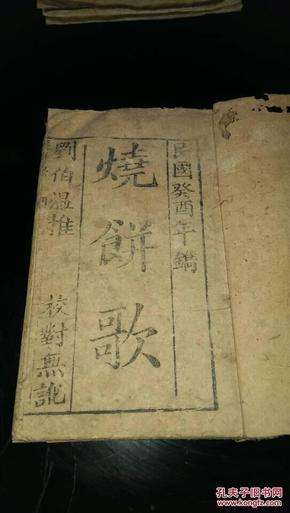 民國癸酉年鐫
燒餅歌
劉伯溫推
校對無訛
孔夫子旧书网
www.kongfz.com